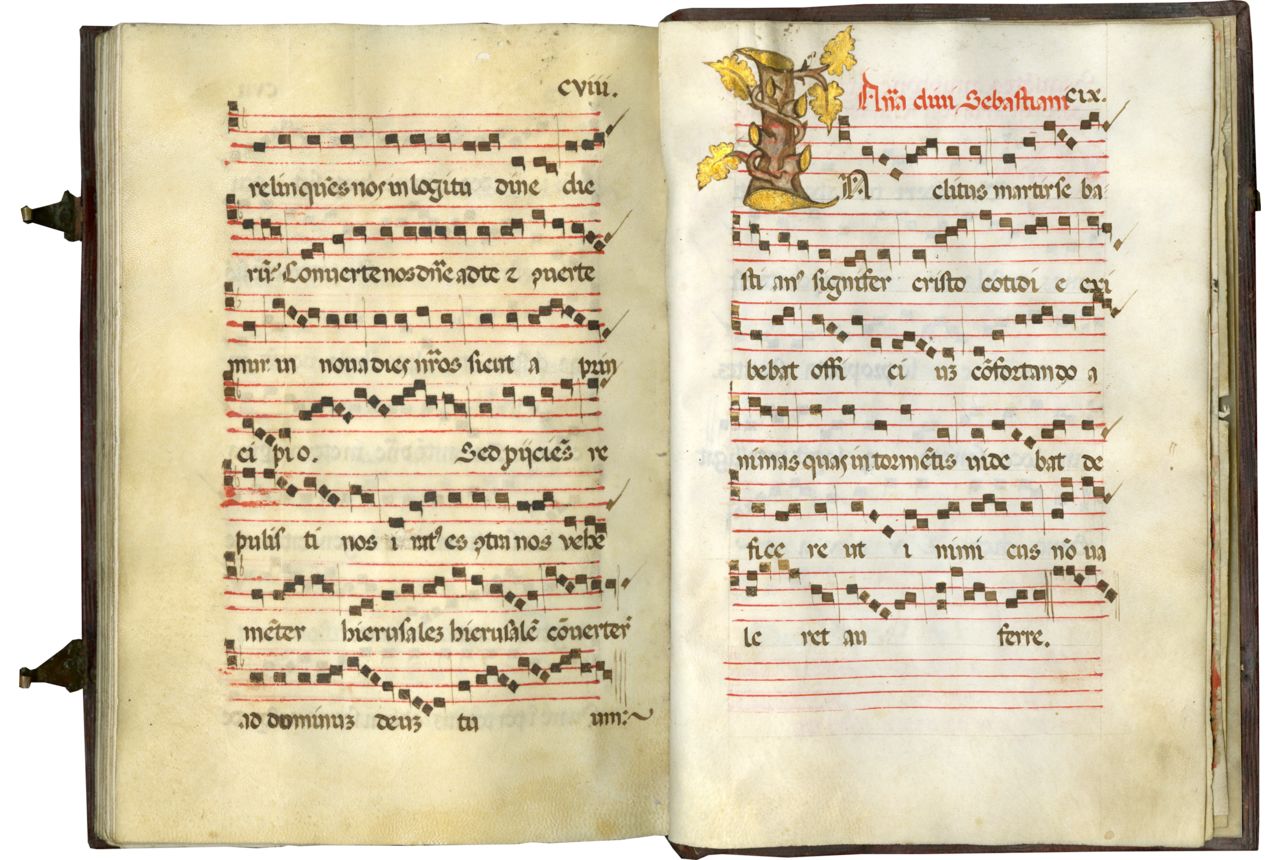 cviii.
relinq̃es nos in logitu dine die
rũ: Conuerte nos dñe ad te ⁊ ꝯuerte
mur in noua dies nr̃os sicut a prin
ci pi o. Sed ꝓijciẽs re
pulis ti nos i rat⁹ es ꝯtra nos vehe
mẽter hierusalez hierusalẽ cõuerter̃
ad dominuz deuz tu um:~
Añã diui Sebastiani cix.
IN clitus martir se ba
sti an⁹ signifer cristo cotidi e exi
bebat offi ci uz cõfortando a
nimas quas in tormẽtis vide bat de
fice re ut i nimi cus nõ va
le ret au ferre.